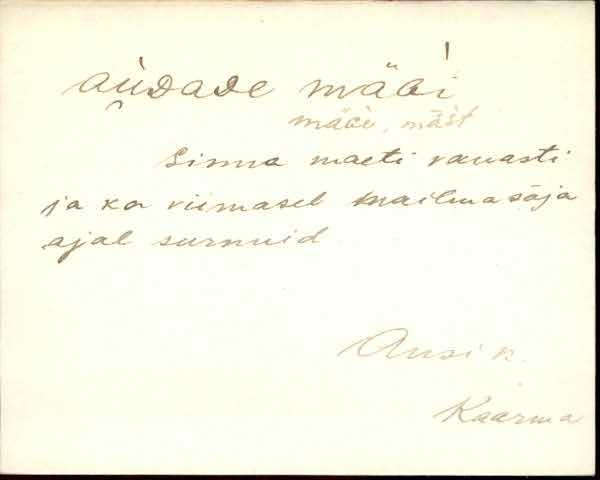 aúdade mäGi
mäGe, mäst
Sinna maeti vanasti
ja ka viimasel mailma sõja
ajal surnuid
Ansi k.
Kaarma